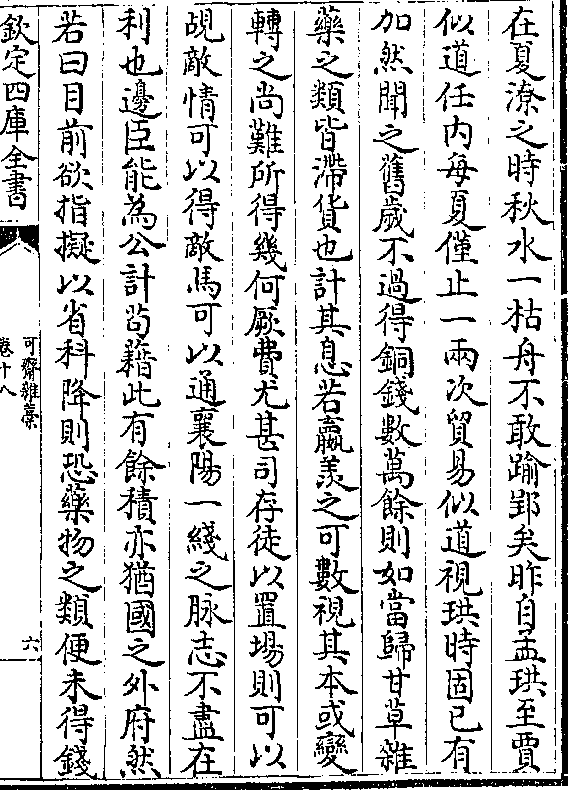 在夏潦之時秋水一枯舟不敢踰郢矣昨自孟珙至賈
似道任内每夏僅止一兩次貿易似道視珙時固已有
加然聞之舊歲不過得銅錢數萬餘則如當歸甘草雜
藥之類皆滯貨也計其息若贏羨之可數視其本或變
轉之尚難所得幾何厥費尤甚司存徒以置場則可以
覘敵情可以得敵馬可以通襄陽一綫之脉志不盡在
利也邊臣能為公計苟藉此有餘積亦猶國之外府然
若曰目前欲指擬以省科降則恐藥物之類便未得錢
欽定四庫全書
可齋雜藁
卷十八
六